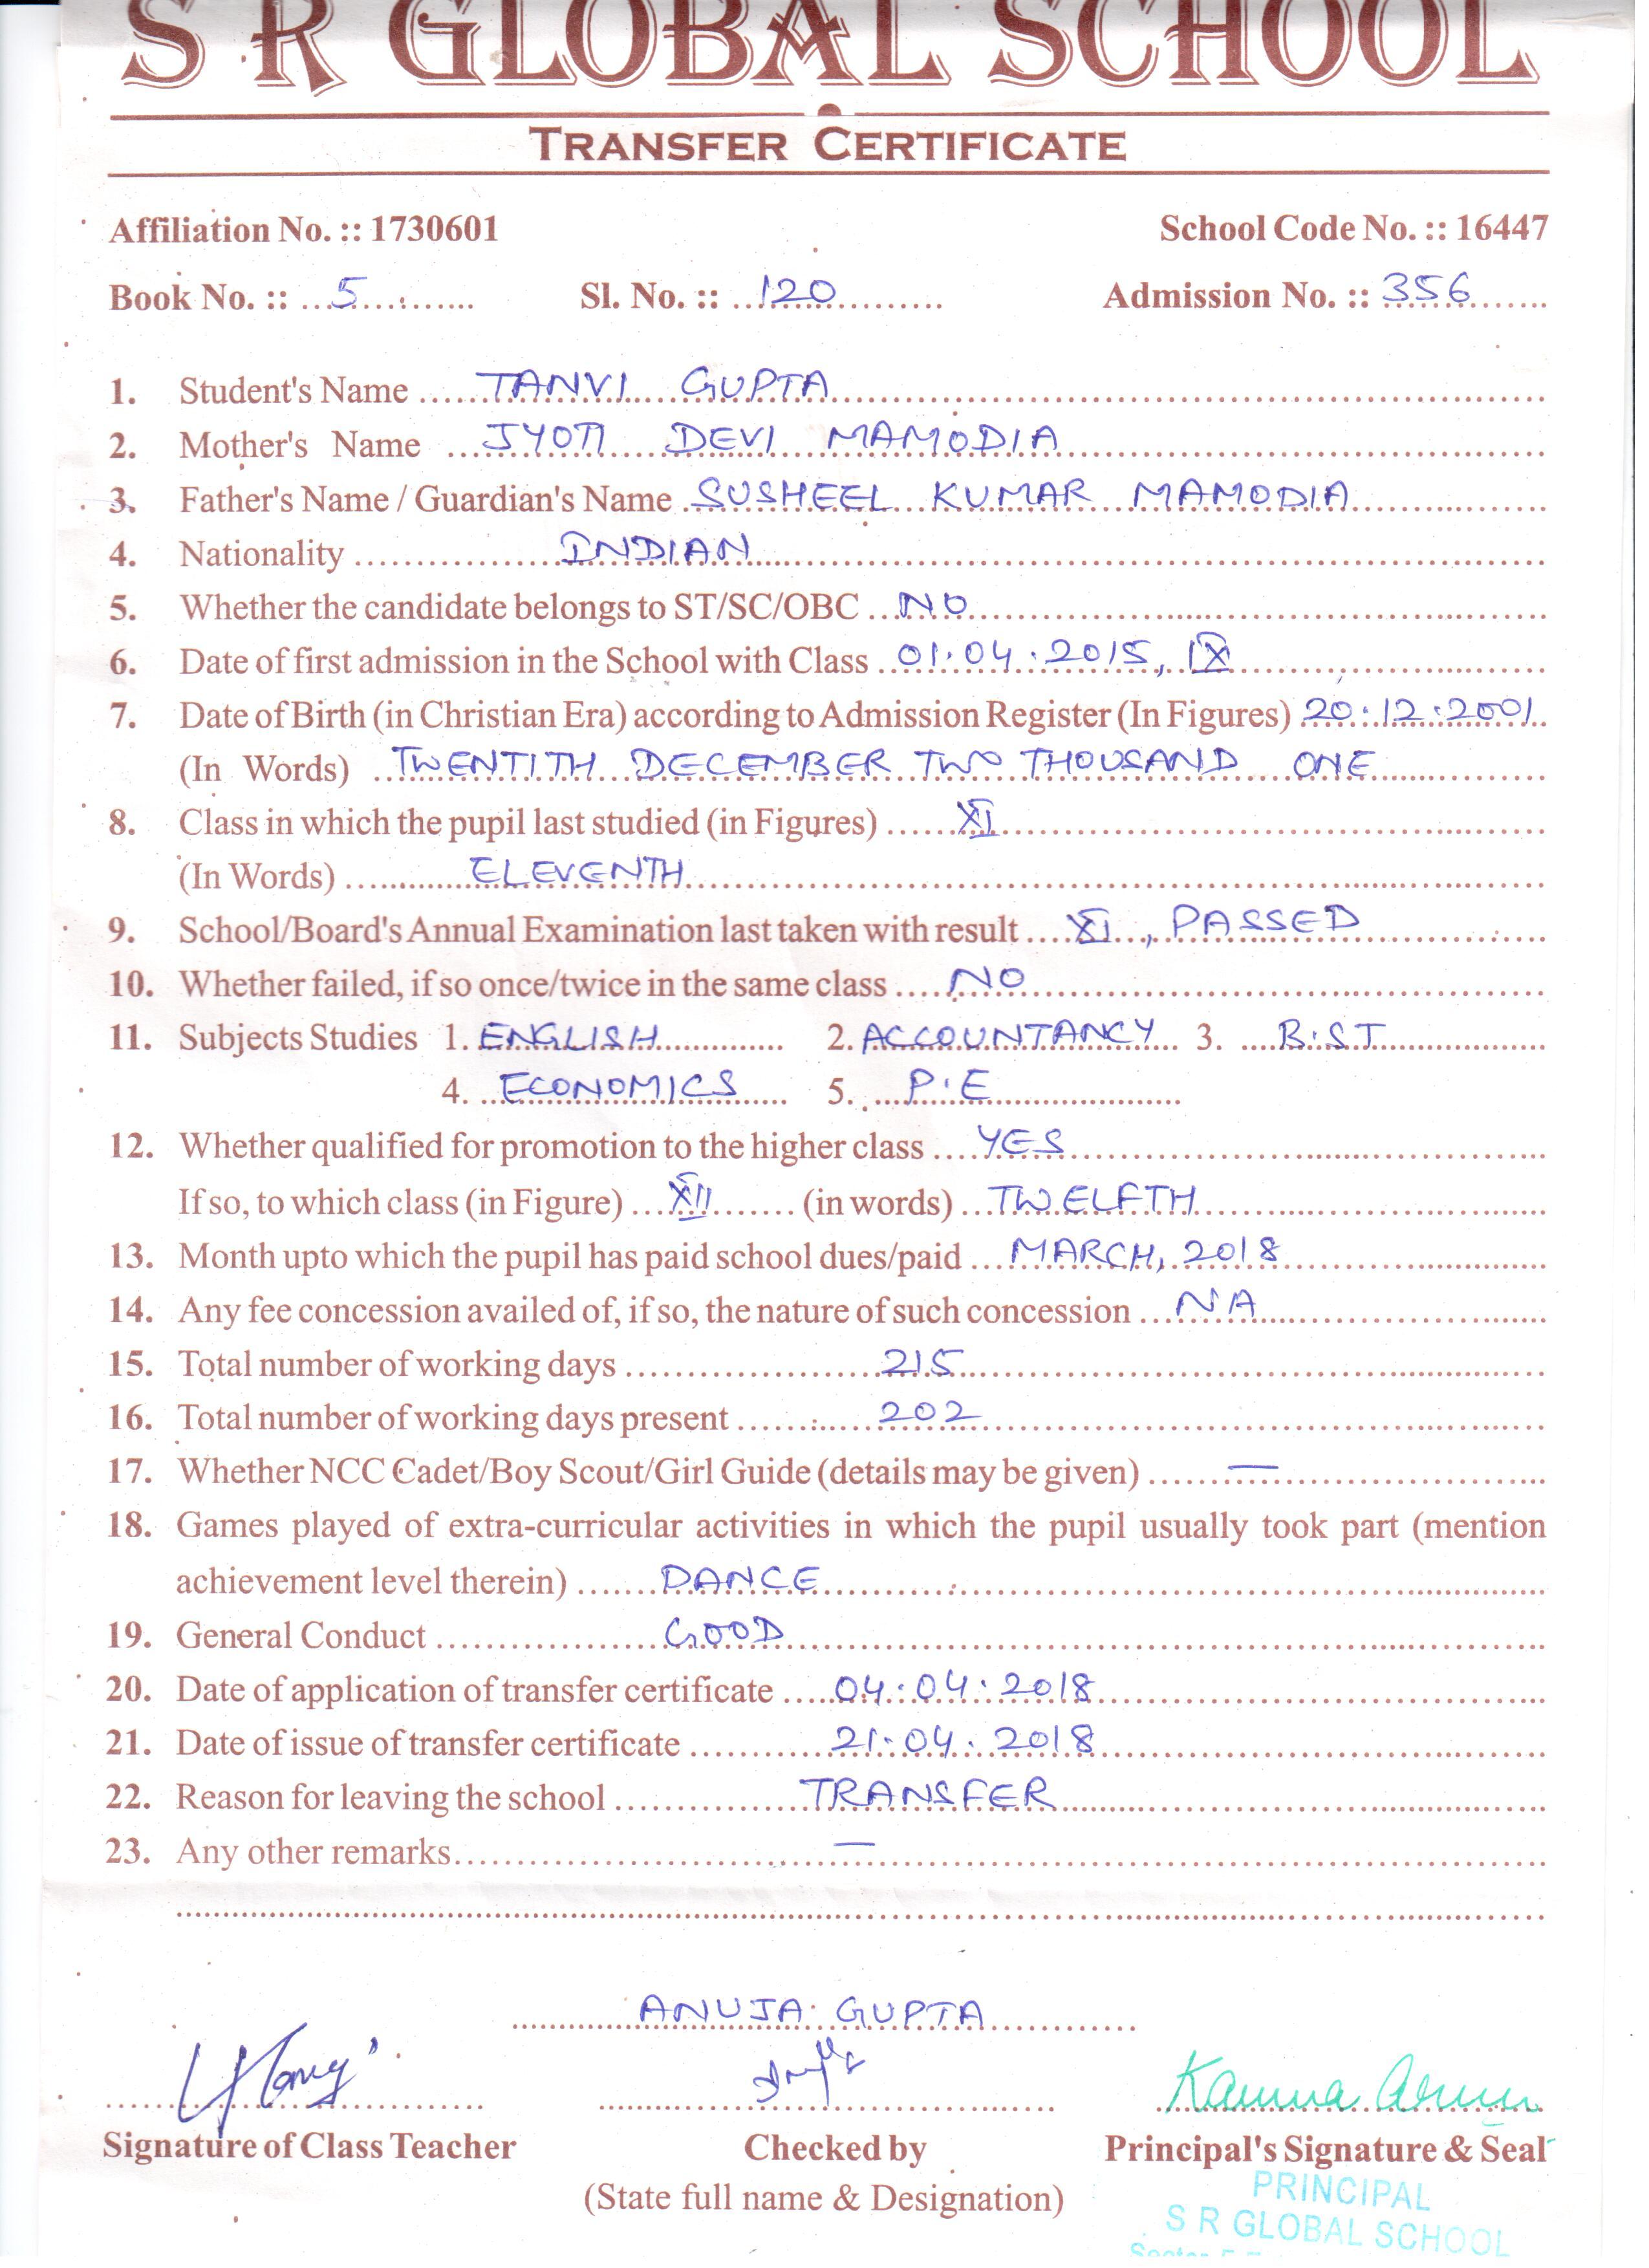 S R GLOBAL SCHOOL
TRANSFER CERTIFICATE
Affiliation No. :: 1730601 School Code No. :: 16447
Book No. :: 5 Sl. No. :: 120 Admission No. :: 356
1. Student's Name TANVI GUPTA
2. Mother's Name JYOTI DEVI MAMODIA
3. Father's Name / Guardian's Name SUSHEEL KUMAR MAMODIA
4. Nationality INDIAN
5. Whether the candidate belongs to ST/SC/OBC NO
6. Date of first admission in the School with Class 01.04.2015, IX
7. Date of Birth (in Christian Era) according to Admission Register (In Figures) 20.12.2001
(In Words) TWENTITH DECEMBER TWO THOUSAND ONE
8. Class in which the pupil last studied (in Figures) XI
(In Words) ELEVENTH
9. School/Board's Annual Examination last taken with result XI, PASSED
10. Whether failed, if so once/twice in the same class NO
11. Subjects Studies 1. ENGLISH 2. ACCOUNTANCY 3. B.ST
4. ECONOMICS 5. P.E
12. Whether qualified for promotion to the higher class YES
If so, to which class (in Figure) XII (in words) TWELFTH
13. Month upto which the pupil has paid school dues/paid MARCH, 2018
14. Any fee concession availed of, if so, the nature of such concession NA
15. Total number of working days 215
16. Total number of working days present 202
17. Whether NCC Cadet/Boy Scout/Girl Guide (details may be given) —
18. Games played of extra-curricular activities in which the pupil usually took part (mention
achievement level therein) DANCE
19. General Conduct GOOD
20. Date of application of transfer certificate 04.04.2018
21. Date of issue of transfer certificate 21.04.2018
22. Reason for leaving the school TRANSFER
23. Any other remarks —
ANUJA GUPTA
Kamna
Signature of Class Teacher Checked by Principal's Signature & Seal
(State full name & Designation)
PRINCIPAL
S R GLOBAL SCHOOL